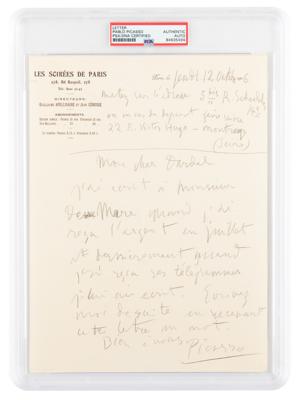 LETTER
PABLO PICASSO
PSA/DNA CERTIFIED
AUTHENTIC
AUTO
PSA
LES SOIRÉES DE PARIS
278, Bd Raspail, 278
DIRECTEURS
GUILLAUME APOLLINAIRE et JEAN CÉRUSSE
ABONNEMENTS
12 Octobre
5 bis R. Schoelcher
22 R. Victor Hugo - montrouge
(Seine)
Mon cher Dardel
j'ai écrit à monsieur
de Maré quand j'ai
reçu l'argent en juillet
et dernièrement quand
j'ai reçu ses télégrammes
je lui ai écrit. Envoyez
moi de suite en recevant
cette lettre un mot.
Bien à vous
Picasso